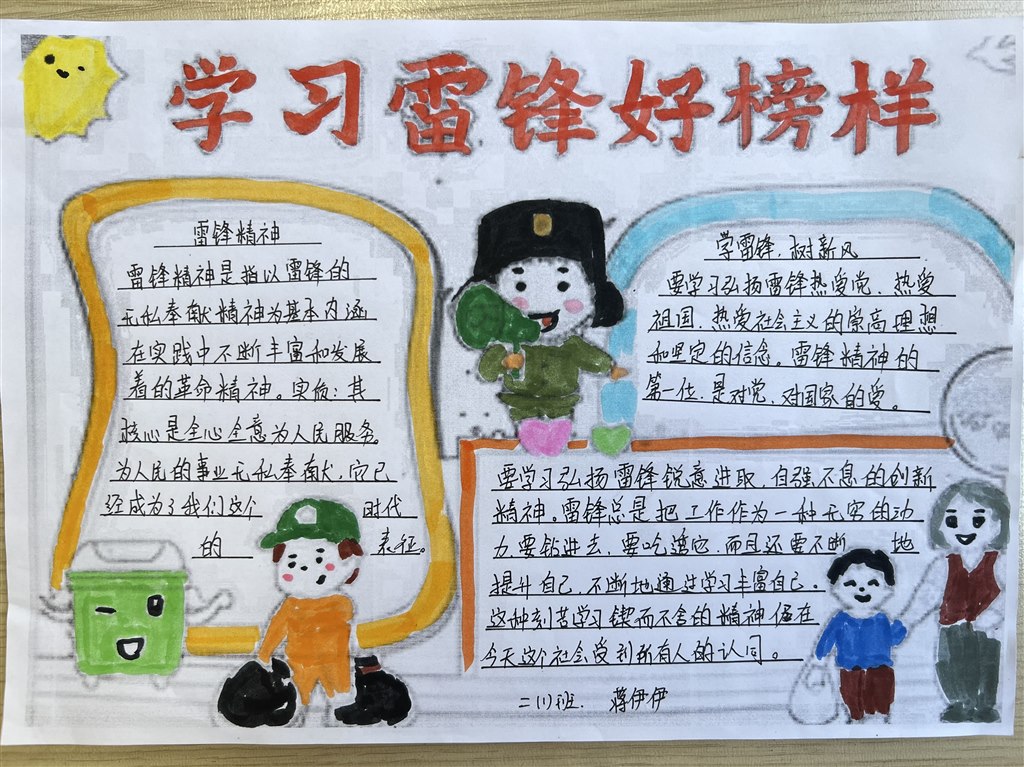 学习雷锋好榜样
雷锋精神
雷锋精神是指以雷锋的
无私奉献精神为基本内涵
在实践中不断丰富和发展
着的革命精神。实质：其
核心是全心全意为人民服务。
为人民的事业无私奉献，它已
经成为了我们这个 时代
的 表征。
学雷锋，树新风
要学习弘扬雷锋热爱党、热爱
祖国、热爱社会主义的崇高理想
和坚定的信念。雷锋精神的
第一位，是对党、对国家的爱。
要学习弘扬雷锋锐意进取，自强不息的创新
精神。雷锋总是把工作作为一种无穷的动
力要钻进去，要吃透它，而且还要不断 地
提升自己，不断地通过学习丰富自己。
这种刻苦学习锲而不舍的精神值在
今天这个社会受到所有人的认同。
二(1)班 蒋伊伊